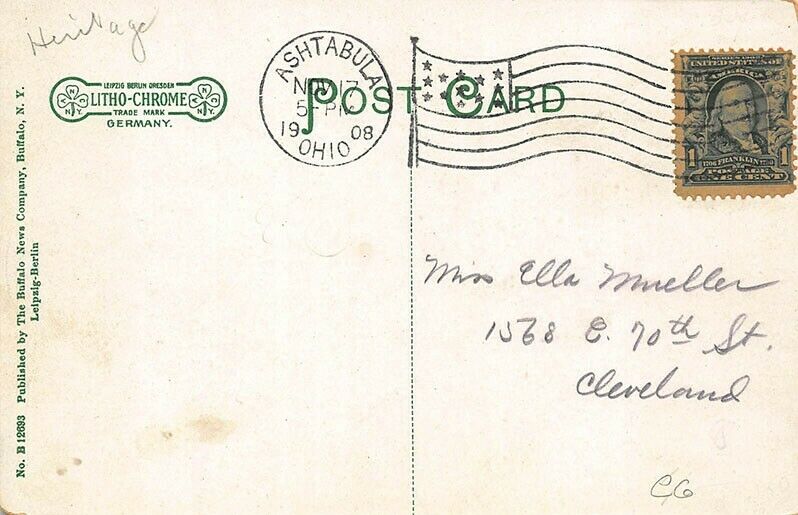 Heritage
LEIPZIG BERLIN DRESDEN
LITHO-CHROME
TRADE MARK
GERMANY.
N Y N
N.Y.
ASHTABULA
NOV 17
5 PM
1908
OHIO
POST CARD
UNITED STATES OF
AMERICA
1
1706 FRANKLIN
POSTAGE
ONE CENT
No. B 12693 Published by The Buffalo News Company, Buffalo, N. Y.
Leipzig-Berlin
Miss Ella Mueller
1568 E. 70th St.
Cleveland
C6